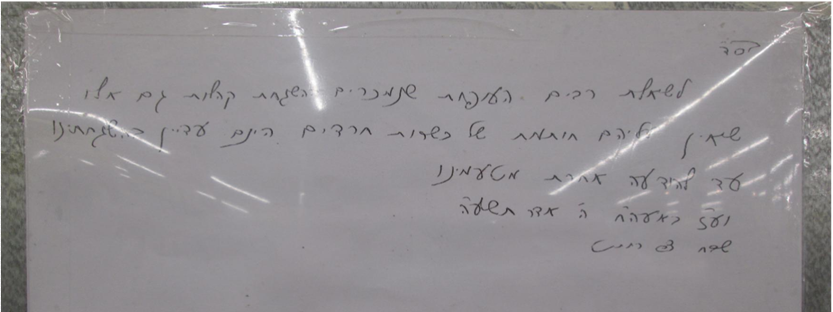 בסד
לשאלת רבים. העופות שנמכרים בהשגחת קהלות גם אלו
שאין עליהם חותמת של כשרות חרדים הינם עדיין בהשגחתינו
עד להודעה אחרת מטעמינו
וע"ז באעה"ח ה' אדר תשע"ה
שבח צבי